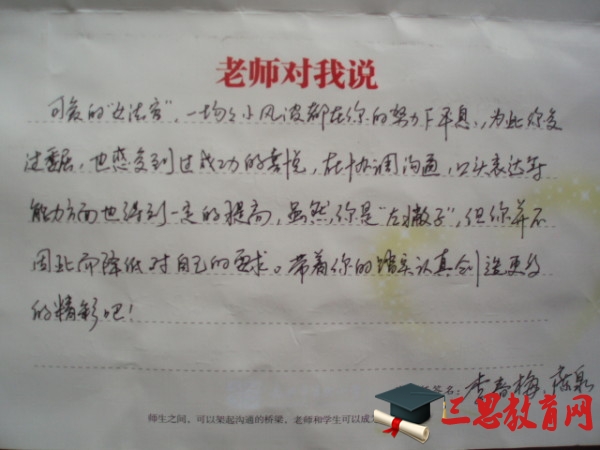 老师对我说
可爱的“大法官”,一场场小风波都在你的努力下平息,为此你受
过委屈,也感受到过成功的喜悦,在协调沟通,口头表达等
能力方面也得到一定的提高,虽然你是“左撇子”,但你并不
因此而降低对自己的要求。带着你的踏实认真创造更多
的精彩吧!
签名:李春梅
师生之间,可以架起沟通的桥梁,老师和学生可以成
三思教育网